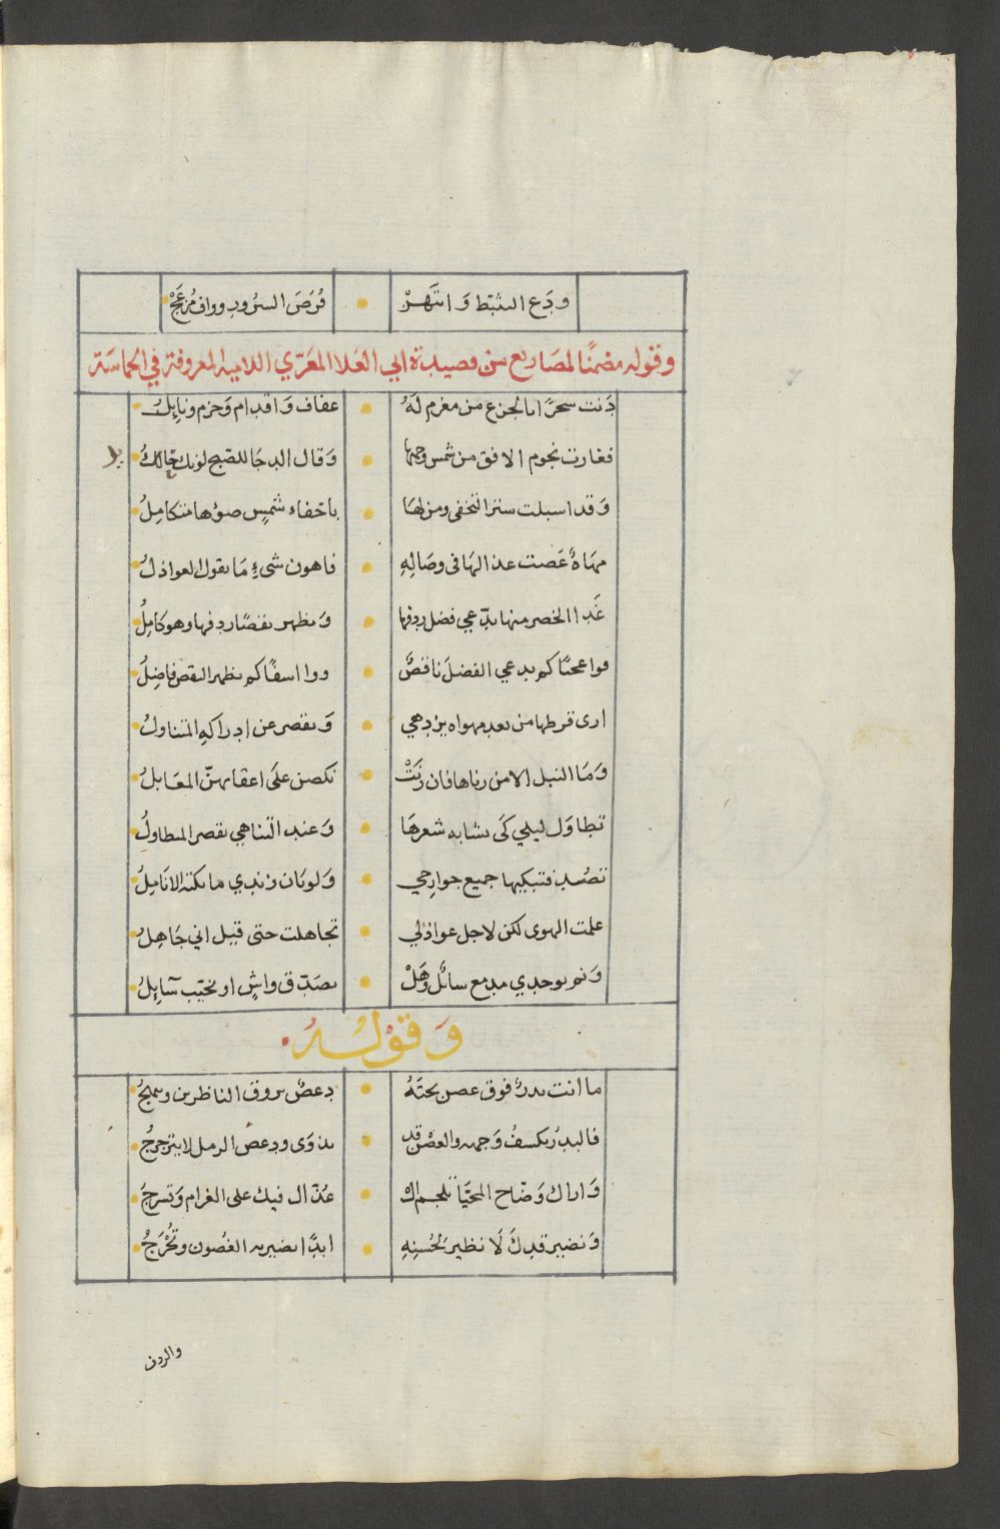 ودع التثبط وانتهز • فُرَصَ السرُور وواف مُزعَج
وقوله مضمنًا لمصَاريع من قصيدة ابي العَلا المعَرّي اللامية المعروفة في الحماسَة
دَنت سحرًا بالجزع من مغرم لهُ • عفاف وَاقدام وَحزم ونايلُ
فغارت نجوم الافق من شمس وجهها • وَقال الدجَا للصبح لونك حَايلُ
وَقد اسبلت ستر التخفى ومن لهَا • باخفاء شمسٍ ضوٴها متكامِلُ
مهَاةٌ عَصت عذالهَا فى وصَالِهِ • فاهون شىءٍ مَا تقول العواذلُ
غَدا الخصر منها يدّعي فضل ردفها • وَيظهر نقصًا ردفها وهو كامِلُ
فوا عجبًا كم يدعي الفضلَ ناقصٌ • ووا اسفًا كم يظهر النقص فاضِلُ
ارى قرطها من بعد مهواه يزدهي • وَيقصر عن ادراكهِ المتناولُ
وَمَا النبل الا من رناها فان رَنَتْ • نكصن علَى اعقابهنّ المعَابلُ
تطاوَل ليلي كَى يشابه شعرهَا • وَعند التناهي يقصر المتطاولُ
تصُد فتبكيها جميع جوارحي • وَلو بَان زندي ما بكته الانَامِلُ
علمت الهوى لكن لاجل عواذلي • تجاهلت حتى قيل اني جَاهِلُ
وَنم بوجدي مدمع سائل وَهَلْ • يصَدّق واشٍ او يخيّب سَايِلُ
وَقَوْلُهُ
ما انت بدرٌ فوق غصن تحتَهُ • دعصٌ يروق الناظرين ويبهجُ
فالبدرُ يكسفُ وَجهه والغصْن قد • يذوَى ودعص الرمل لا يترجرجُ
وَاراك وَضّاح المحيّا تلجم ال • عذّال فيك على الغرام وَتسرجُ
وَنضير قدك لَا نظير لحُسنِهِ • ابدًا تضير به الغصُون وتُحْرَجُ
والردف